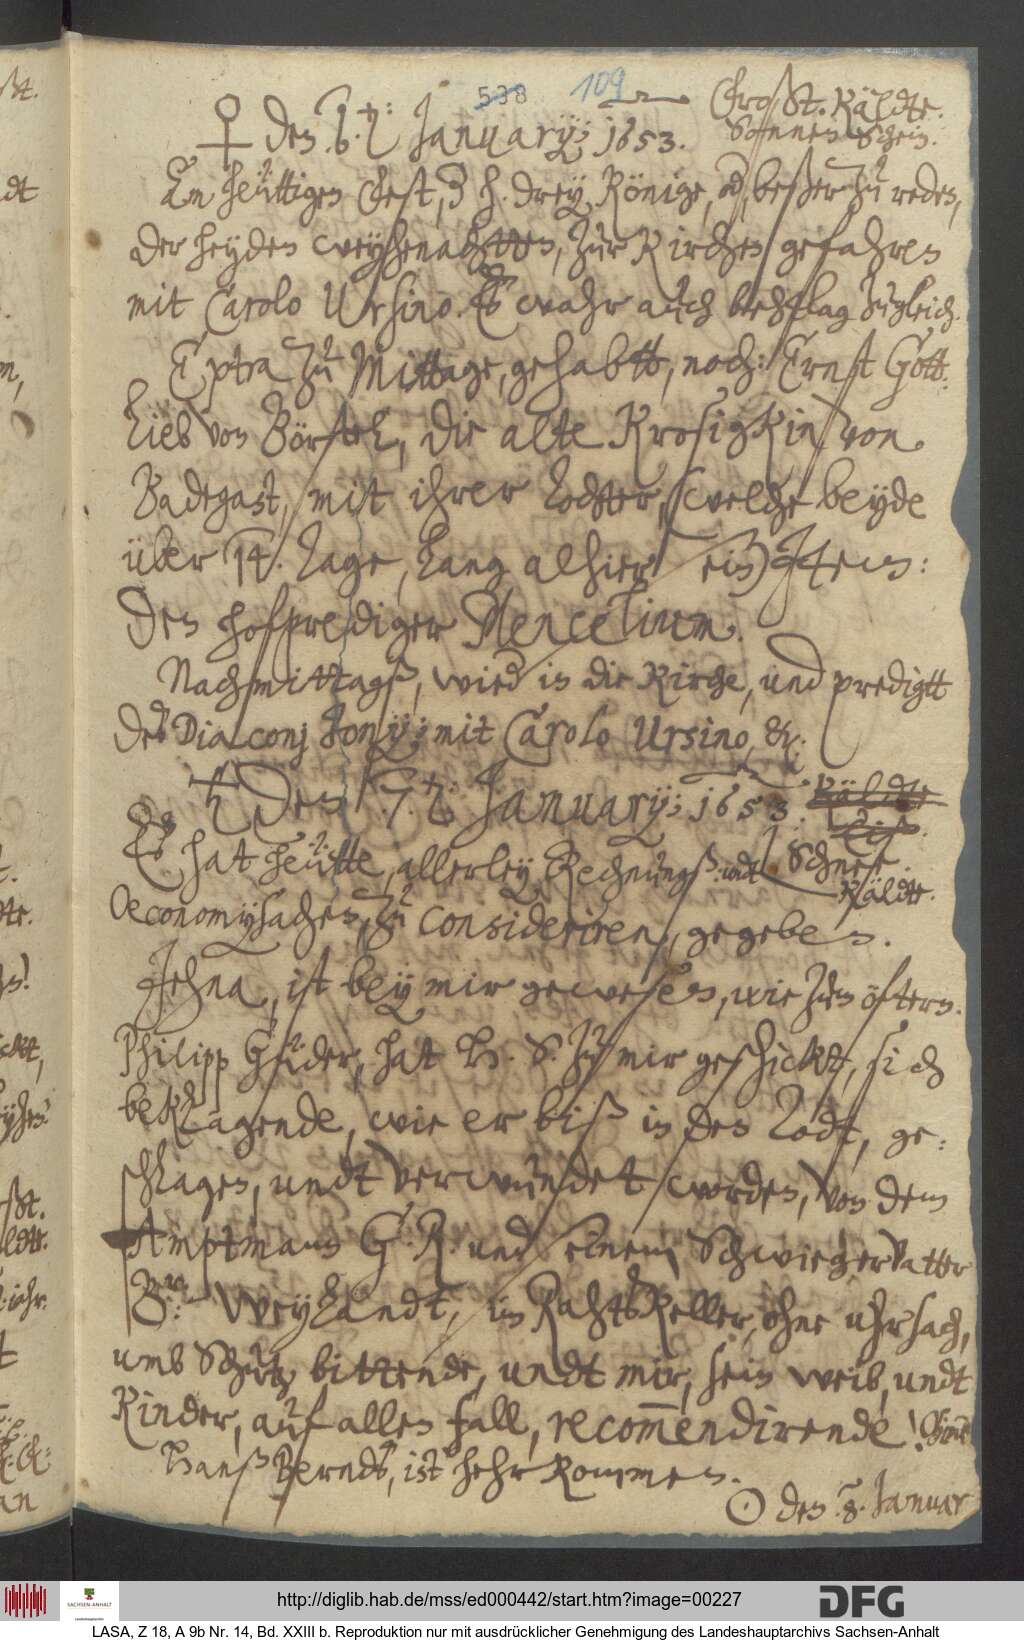 538 109
♀ den 6.t: Januarÿ; 1653.
Frost. Käldte.
Sonnenschein.
Am heüttigen Fest, 3 h. dreÿ Könige, od beßer zu reden,
der heyden weyhenachtten, zur Kirchen gefahren
mit Carolo Ursino. Es wahr auch behtTag zugleich.
Extra zu Mittage, gehabtt, noch: Ernst Gott¬
lieb von Börstel, die alte Krosigkin von
Badegast, mit ihrer Tochter, welche beÿde
über 14. Tage, lang alhier sein, Item:
den hofprediger Mencelium.
Nachmittagß, wied in die Kirche, und predigtt
des Diaconj Jonij; mit Carolo Ursino, &c:
♄ den 7.t: Januarÿ; 1653.
Käldte
Schnee.
Käldte.
Es hat heütte, allerleÿ Rechnungß: undt
Oeconomÿsachen, zu consideriren, gegeben.
Jehna, ist beÿ mir gewesen, wie zum öftern.
Philipp Güder, hat h. S. zu mir geschickt, sich
beklagende, wie er biß in den Todt, ge¬
schlagen, undt verwundet worden, von dem
Amptmann G. R. und seinem Schwiegervatter
Weylandt, im RahtsKeller, ohne uhrsach,
umb Schutz bittende, undt mir, sein weib, undt
Kinder, auf allen fall, recom̄endirende!
Hanß Berndt, ist hehr kommen.
☉ den 8. Januar
http://diglib.hab.de/mss/ed000442/start.htm?image=00227
SACHSEN-ANHALT
Landeshauptarchiv
DFG
LASA, Z 18, A 9b Nr. 14, Bd. XXIII b. Reproduktion nur mit ausdrücklicher Genehmigung des Landeshauptarchivs Sachsen-Anhalt